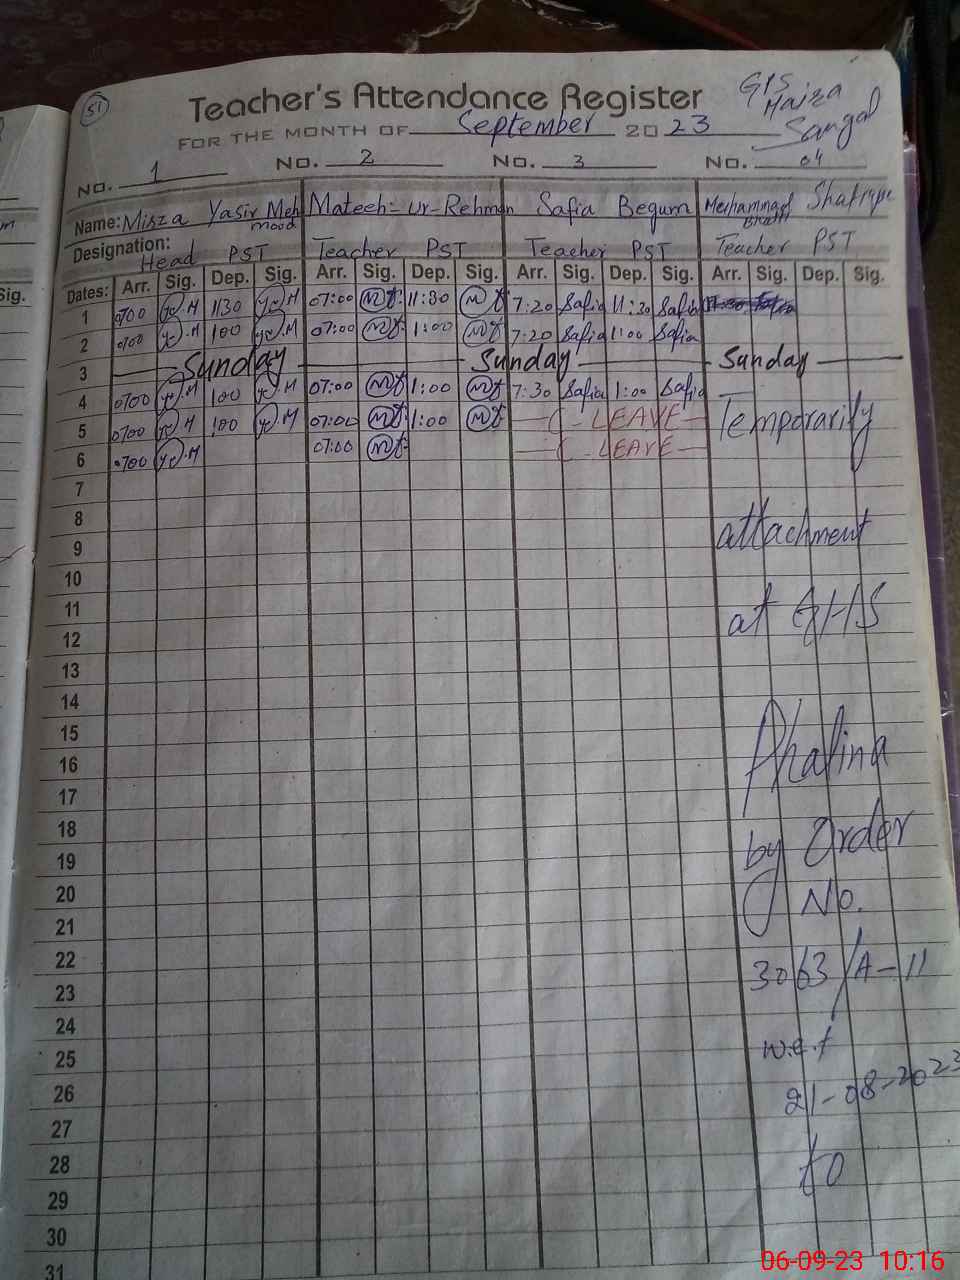 51
Teacher's Attendance Register
GPS
Haira
Sangal
FOR THE MONTH OF September 2023
NO. 1 NO. 2 NO. 3 NO. 04
Name: Mirza Yasir Mehmood Mateeh-ur-Rehman Safia Begum Muhammad Bhatti
Designation: Head PST Teacher PST Teacher PST Teacher PST
Dates: Arr. Sig. Dep. Sig. Arr. Sig. Dep. Sig. Arr. Sig. Dep. Sig. Arr. Sig. Dep. Sig.
1 0700 1130 07:00 11:30 7:20 Safia 11:30 Safia
2 0700 100 07:00 1:00 7:20 Safia 1:00 Safia
3 Sunday Sunday Sunday
4 0700 100 07:00 1:00 7:30 Safia 1:00 Safia
5 0700 100 07:00 1:00 C-LEAVE Temporarily
6 0700 07:00 C-LEAVE
7
8 attachment
9
10
11 at GHS
12
13
14
15
16 Phalina
17
18
19 by Order
20 No.
21
22
23 3063/A-11
24
25 w.e.f
26 21-08-2023
27
28 to
29
30
31
Sig.
06-09-23 10:16